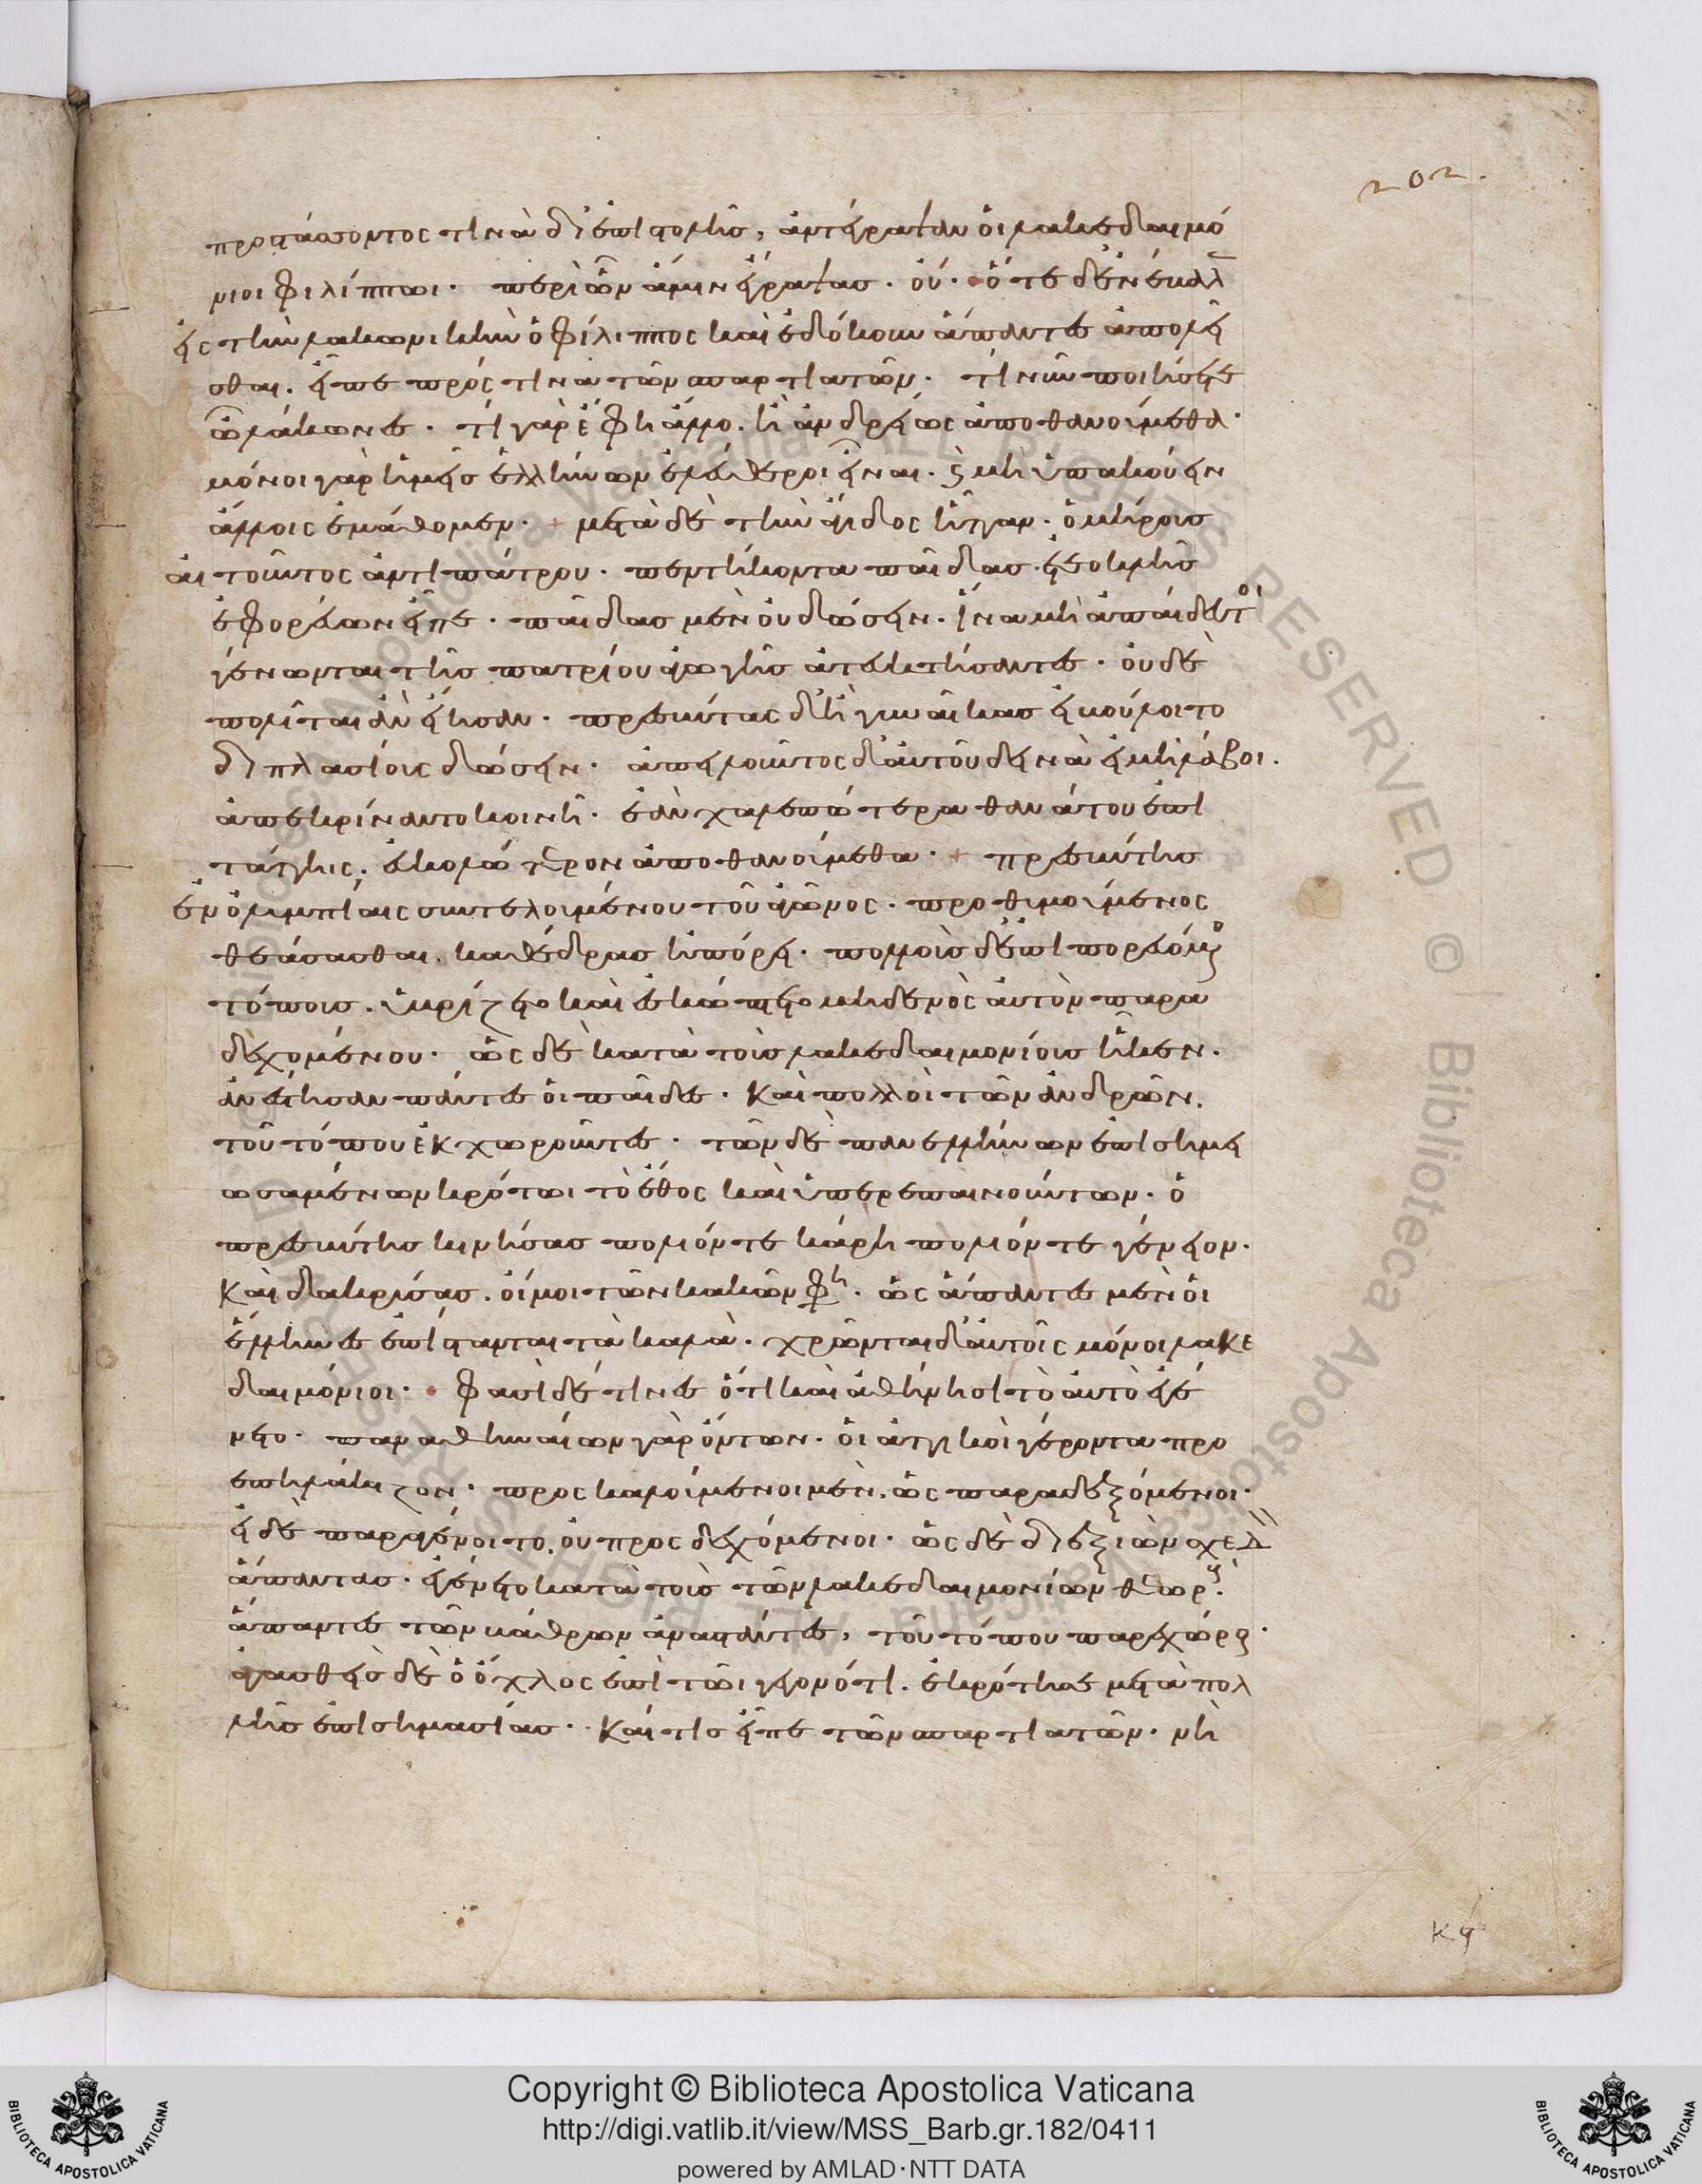 202.
προστάσσοντός τινα δι' ἐπιστολῆς, ἀντέγραψαν οἱ λακεδαιμό
νιοι φιλίππωι. περὶ ὧν ἄμιν ἔγραψας. οὔ. ὅτε δ' ἐνέβαλ
εἰς τὴν λακωνικὴν ὁ φίλιππος καὶ ἐδόκουν ἅπαντες ἀπολεῖ
σθαι. εἶπε πρός τινα τῶν σπαρτιατῶν. τί νῦν ποιήσετε
ὦ λάκωνες. τί γὰρ ἔφη ἄλλο. ἢ ἀνδρείως ἀποθανούμεθα.
μόνοι γὰρ ἡμεῖς ἑλλήνων ἐλεύθεροι εἶναι. καὶ μὴ ὑπακούειν
ἄλλοις ἐμάθομεν. + μετὰ δὲ τὴν ἄγιδος ἧτταν. ὁμήρους
αἰτοῦντος ἀντιπάτρου. πεντήκοντα παῖδας. ἐτεοκλῆς
ἐφορεύων εἶπε. παῖδας μὲν οὐ δώσειν. ἵνα μὴ ἀπαίδευτοι
γένωνται τῆς πατρίου ἀγωγῆς ἀτακτήσαντες. οὐδὲ
πολῖται ἂν εἴησαν. πρεσβύτας δ' ἢ γυναῖκας εἰ βούλοιτο
διπλασίους δώσειν. ἀπειλοῦντος δ' αὐτοῦ δεινὰ εἰ μὴ λάβοι.
ἀπεκρίναντο κοινῇ. ἐὰν χαλεπώτερα θανάτου ἐπι
τάττῃς. εὐκολώτερον ἀποθανούμεθα. + πρεσβύτης
ἐν ὀλυμπίαις συντελουμένου τοῦ ἀγῶνος. προθυμούμενος
θεάσασθαι. καθέδρας ἠπόρει. πολλοὺς δ' ἐπιπορευόμενος
τόπους. ὑβρίζετο καὶ ἐσκώπτετο μηδενὸς αὐτὸν παρα
δεχομένου. ὡς δὲ κατὰ τοὺς λακεδαιμονίους ἧκεν.
ἀνέστησαν πάντες οἱ παῖδες. Καὶ πολλοὶ τῶν ἀνδρῶν.
τοῦ τόπου ἐκχωροῦντες. τῶν δὲ πανελλήνων ἐπισημει
ωσαμένων κρότωι τὸ ἔθος καὶ ὑπερεπαινούντων. ὁ
πρεσβύτης κινήσας πολιόν τε κάρη πολιόν τε γένειον.
Καὶ δακρύσας. οἴμοι τῶν κακῶν φη. ὡς ἅπαντες μὲν οἱ
ἕλληνες ἐπίστανται τὰ καλὰ. χρῶνται δ' αὐτοῖς μόνοι λακε
δαιμόνιοι. φασὶ δέ τινες ὅτι καὶ ἀθήνησι τὸ αὐτὸ ἐγέ
νετο. παναθηναίων γὰρ ὄντων. οἱ ἀττικοὶ γέροντα προ
επηλάκιζον. προσκαλούμενοι μὲν. ὡς παραδεξόμενοι.
εἰ δὲ παραγένοιτο. οὐ προσδεχόμενοι. ὡς δὲ διεξιὼν σχεδὸν
ἅπαντας. ἐγένετο κατὰ τοὺς τῶν λακεδαιμονίων θεωρούς.
ἅπαντες τῶν βάθρων ἀναστάντες, τοῦ τόπου παρεχώρουν.
ἀγασθεὶς δὲ ὁ ὄχλος ἐπὶ τῶι γεγονότι. ἐκρότησε μετὰ πολ
λῆς ἐπισημασίας. Καί τις εἶπε τῶν σπαρτιατῶν. νὴ
Copyright © Biblioteca Apostolica Vaticana
http://digi.vatlib.it/view/MSS_Barb.gr.182/0411
powered by AMLAD·NTT DATA
BIBLIOTECA APOSTOLICA VATICANA
BIBLIOTECA APOSTOLICA VATICANA